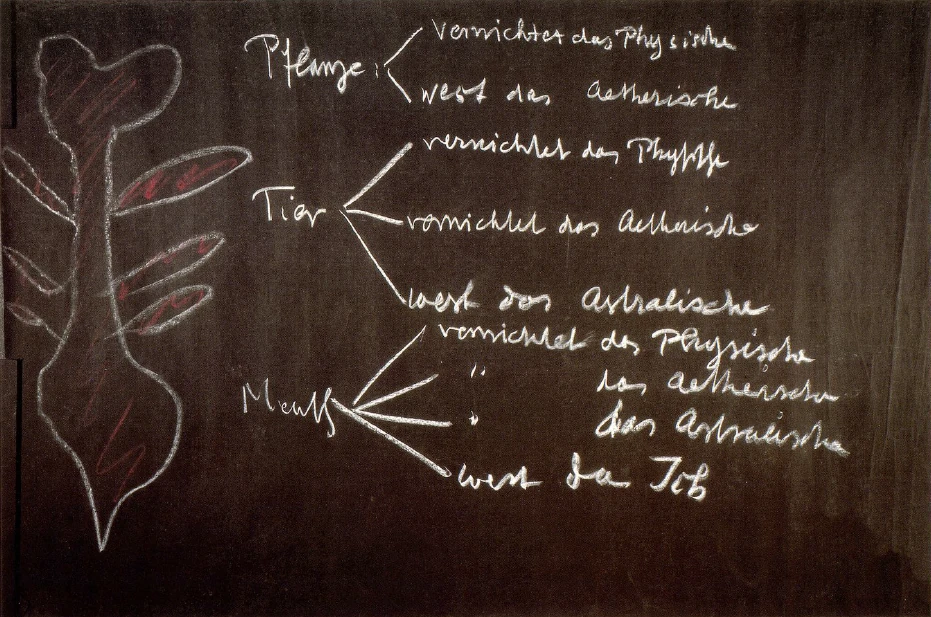 Pflanze: vernichtet das Physische
west das Aetherische
Tier vernichtet das Physische
vernichtet das Aetherische
west das Astralische
Mensch vernichtet das Physische
" das Aetherische
" das Astralische
west das Ich